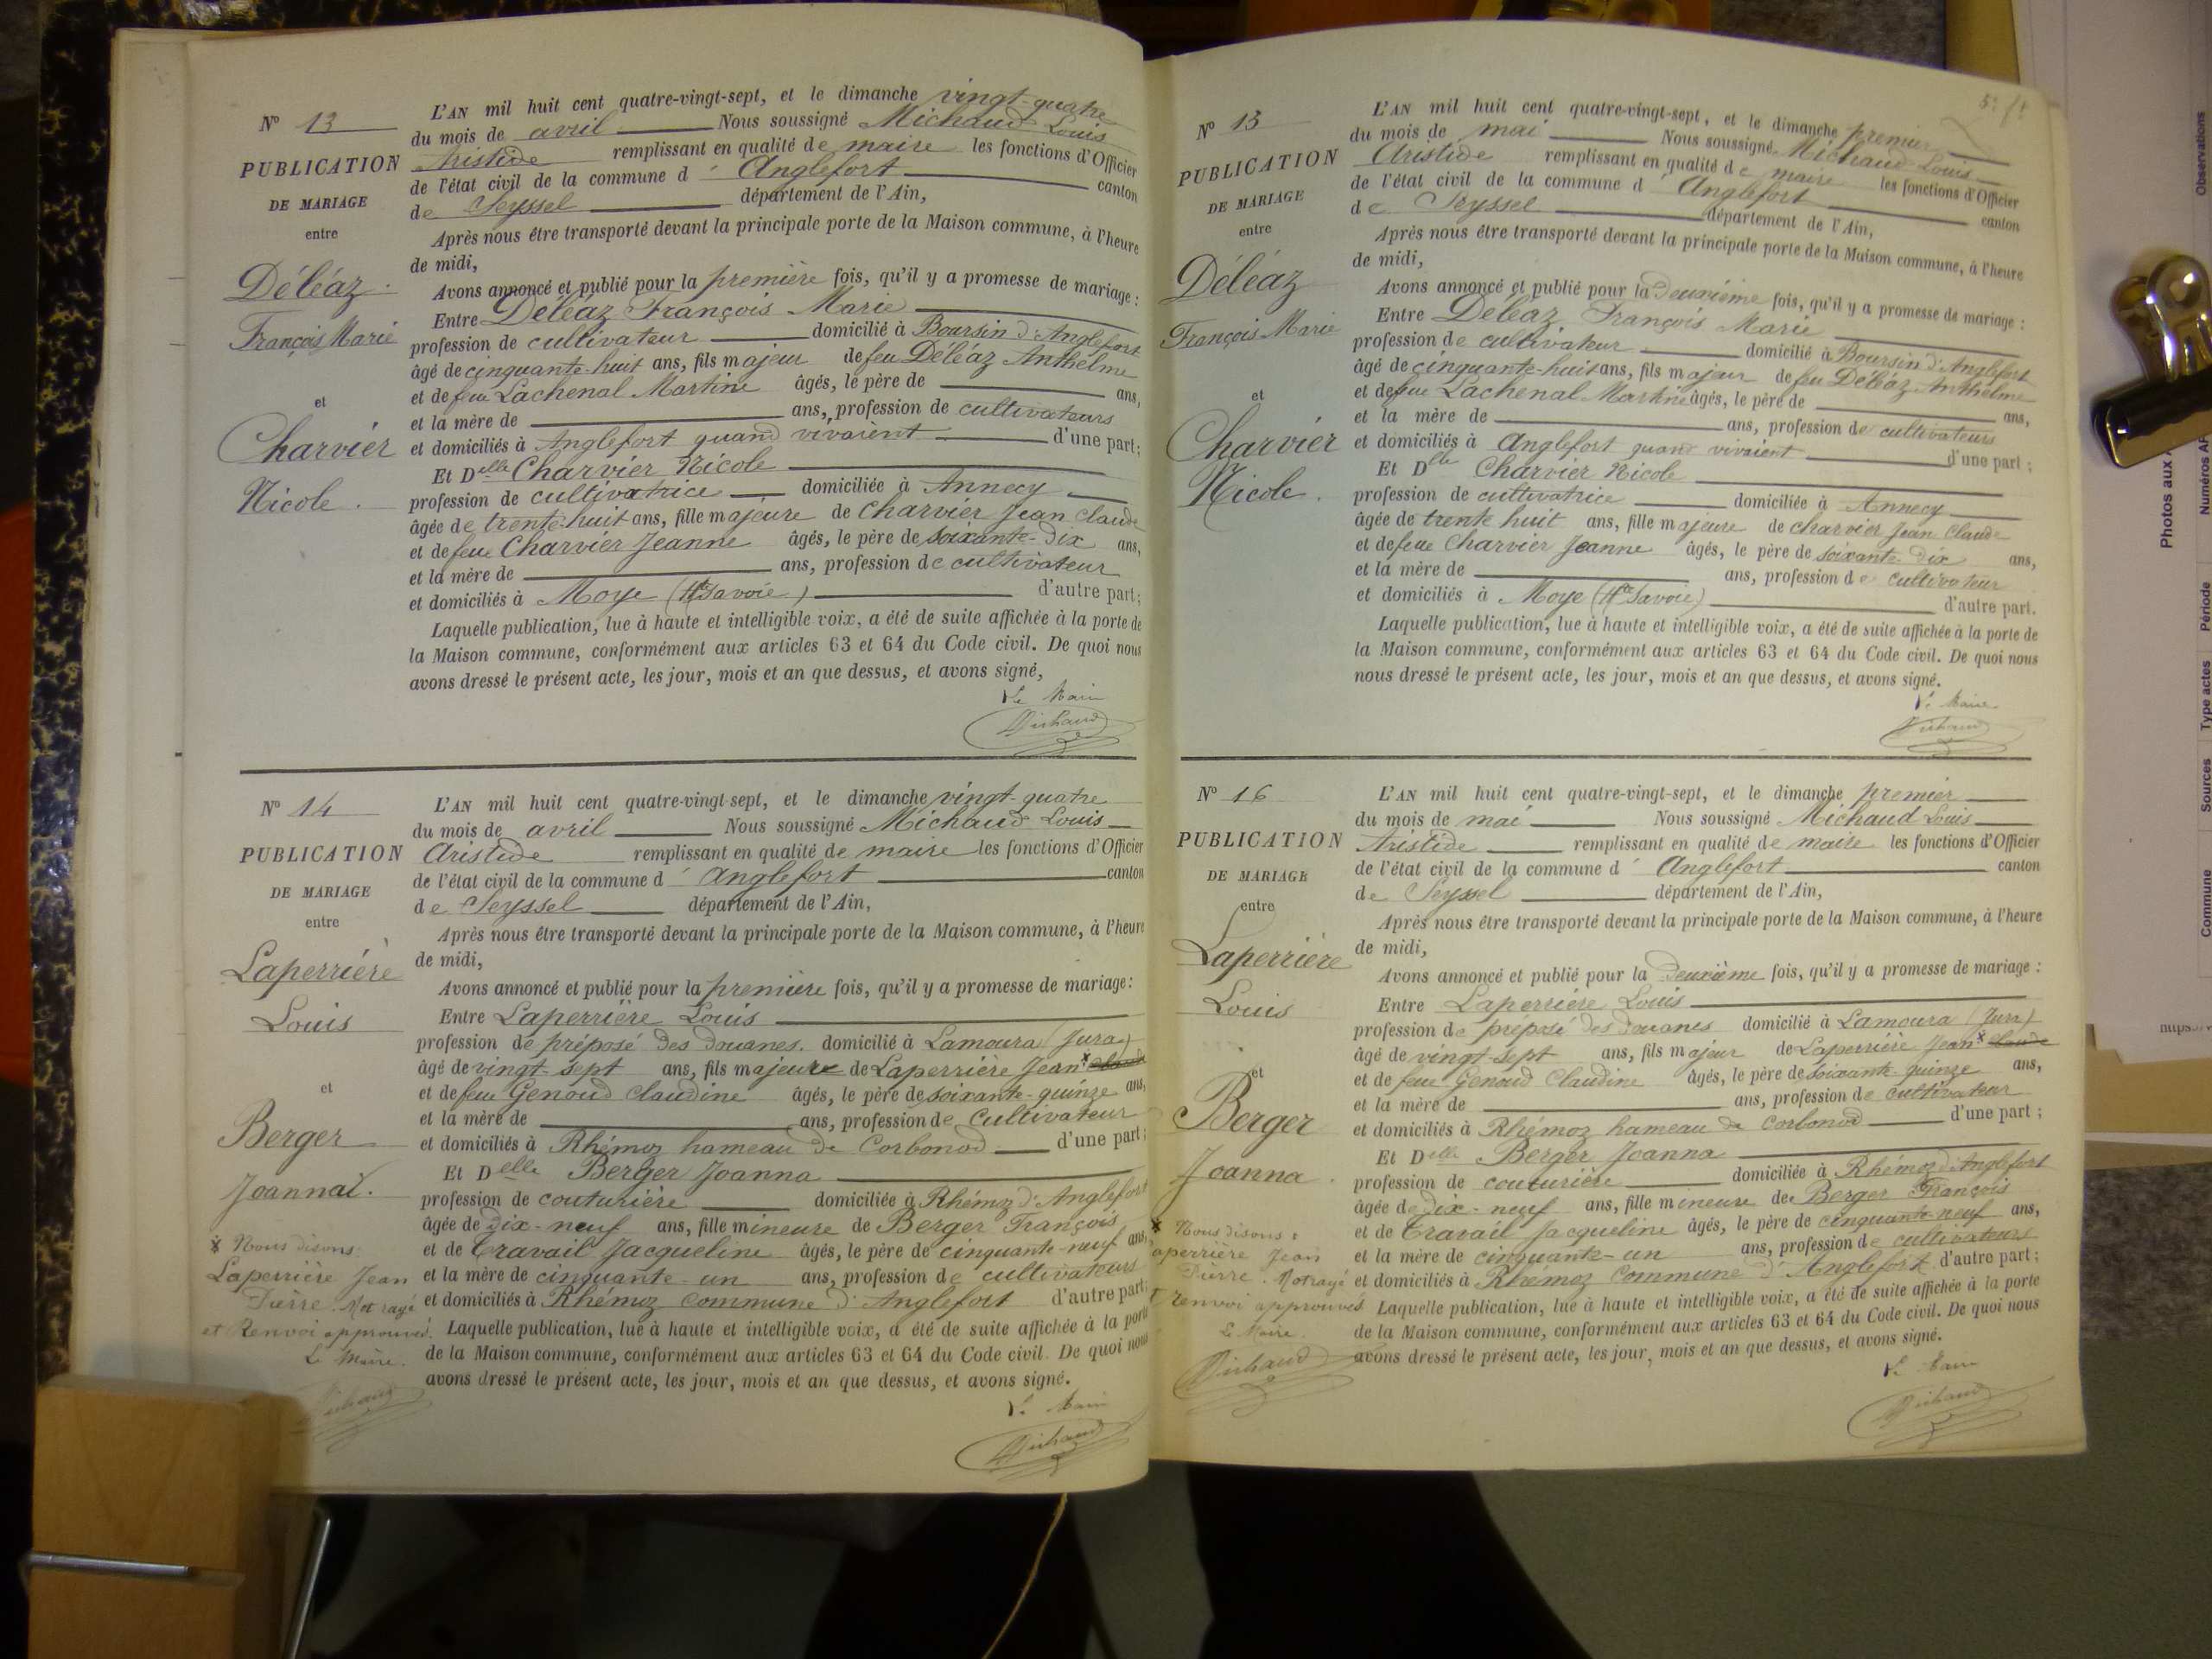 N° 13
PUBLICATION
DE MARIAGE
entre
Déléaz
François Marie
et
Charvier
Nicole.
L'AN mil huit cent quatre-vingt-sept, et le dimanche vingt-quatre
du mois de avril Nous soussigné Michaud Louis
Aristide remplissant en qualité de maire les fonctions d'Officier
de l'état civil de la commune d' Anglefort canton
de Seyssel département de l'Ain,
Après nous être transporté devant la principale porte de la Maison commune, à l'heure
de midi,
Avons annoncé et publié pour la première fois, qu'il y a promesse de mariage :
Entre Déléaz François Marie
profession de cultivateur domicilié à Boursin d'Anglefort
âgé de cinquante-huit ans, fils majeur de feu Déléaz Anthelme
et de feue Lachenal Martine âgés, le père de ans,
et la mère de ans, profession de cultivateurs
et domiciliés à Anglefort quand vivaient d'une part;
Et Delle Charvier Nicole
profession de cultivatrice domiciliée à Annecy
âgée de trente-huit ans, fille majeure de Charvier Jean Claude
et de feue Charvier Jeanne âgés, le père de soixante-dix ans,
et la mère de ans, profession de cultivateur
et domiciliés à Moye (Hte Savoie) d'autre part;
Laquelle publication, lue à haute et intelligible voix, a été de suite affichée à la porte de
la Maison commune, conformément aux articles 63 et 64 du Code civil. De quoi nous
avons dressé le présent acte, les jour, mois et an que dessus, et avons signé,
Le Maire
Michaud
N° 14
PUBLICATION
DE MARIAGE
entre
Laperrière
Louis
et
Berger
Joanna.
x Nous disons:
Laperrière Jean
Pierre. Mot rayé
et Renvoi approuvés.
Le Maire.
Michaud
L'AN mil huit cent quatre-vingt-sept, et le dimanche vingt-quatre
du mois de avril Nous soussigné Michaud Louis
Aristide remplissant en qualité de maire les fonctions d'Officier
de l'état civil de la commune d' Anglefort canton
de Seyssel département de l'Ain,
Après nous être transporté devant la principale porte de la Maison commune, à l'heure
de midi,
Avons annoncé et publié pour la première fois, qu'il y a promesse de mariage:
Entre Laperrière Louis
profession de préposé des douanes. domicilié à Lamoura (Jura)
âgé de vingt-sept ans, fils majeure de Laperrière Jean x
et de feue Genoud Claudine âgés, le père de soixante-quinze ans,
et la mère de ans, profession de cultivateur
et domiciliés à Rhémoz hameau de Corbonod d'une part;
Et Delle Berger Joanna
profession de couturière domiciliée à Rhémoz d'Anglefort
âgée de dix-neuf ans, fille mineure de Berger François
et de Travail Jacqueline âgés, le père de cinquante-neuf ans,
et la mère de cinquante-un ans, profession de cultivateurs
et domiciliés à Rhémoz commune d'Anglefort d'autre part;
Laquelle publication, lue à haute et intelligible voix, a été de suite affichée à la porte
de la Maison commune, conformément aux articles 63 et 64 du Code civil. De quoi nous
avons dressé le présent acte, les jour, mois et an que dessus, et avons signé.
Le Maire
Michaud
N° 15
PUBLICATION
DE MARIAGE
entre
Déléaz
François Marie
et
Charvier
Nicole.
L'AN mil huit cent quatre-vingt-sept, et le dimanche premier
du mois de mai Nous soussigné Michaud Louis
Aristide remplissant en qualité de maire les fonctions d'Officier
de l'état civil de la commune d' Anglefort canton
de Seyssel département de l'Ain,
Après nous être transporté devant la principale porte de la Maison commune, à l'heure
de midi,
Avons annoncé et publié pour la deuxième fois, qu'il y a promesse de mariage :
Entre Déléaz François Marie
profession de cultivateur domicilié à Boursin d'Anglefort
âgé de cinquante-huit ans, fils majeur de feu Déléaz Anthelme
et de feue Lachenal Martine âgés, le père de ans,
et la mère de ans, profession de cultivateurs
et domiciliés à Anglefort quand vivaient d'une part ;
Et Dlle Charvier Nicole
profession de cultivatrice domiciliée à Annecy
âgée de trente huit ans, fille majeure de Charvier Jean Claude
et de feue Charvier Jeanne âgés, le père de soixante-dix ans,
et la mère de ans, profession de cultivateur
et domiciliés à Moye (Hte Savoie) d'autre part.
Laquelle publication, lue à haute et intelligible voix, a été de suite affichée à la porte de
la Maison commune, conformément aux articles 63 et 64 du Code civil. De quoi nous
nous dressé le présent acte, les jour, mois et an que dessus, et avons signé.
Le Maire
Michaud
N° 16
PUBLICATION
DE MARIAGE
entre
Laperrière
Louis
et
Berger
Joanna.
x Nous disons :
Laperrière Jean
Pierre. Mot rayé
et renvoi approuvés
Le Maire.
Michaud
L'AN mil huit cent quatre-vingt-sept, et le dimanche premier
du mois de mai Nous soussigné Michaud Louis
Aristide remplissant en qualité de maire les fonctions d'Officier
de l'état civil de la commune d' Anglefort canton
de Seyssel département de l'Ain,
Après nous être transporté devant la principale porte de la Maison commune, à l'heure
de midi,
Avons annoncé et publié pour la deuxième fois, qu'il y a promesse de mariage :
Entre Laperrière Louis
profession de préposé des douanes domicilié à Lamoura (Jura)
âgé de vingt-sept ans, fils majeur de Laperrière Jean x Claude
et de feue Genoud Claudine âgés, le père de soixante-quinze ans,
et la mère de ans, profession de cultivateur
et domiciliés à Rhémoz hameau de Corbonod d'une part ;
Et Delle Berger Joanna
profession de couturière domiciliée à Rhémoz d'Anglefort
âgée de dix-neuf ans, fille mineure de Berger François
et de Travail Jacqueline âgés, le père de cinquante-neuf ans,
et la mère de cinquante-un ans, profession de cultivateurs
et domiciliés à Rhémoz Commune d'Anglefort d'autre part ;
Laquelle publication, lue à haute et intelligible voix, a été de suite affichée à la porte
de la Maison commune, conformément aux articles 63 et 64 du Code civil. De quoi nous
avons dressé le présent acte, les jour, mois et an que dessus, et avons signé.
Le Maire
Michaud
Observations
Numéros
Photos aux
Période
Type actes
Sources
Commune